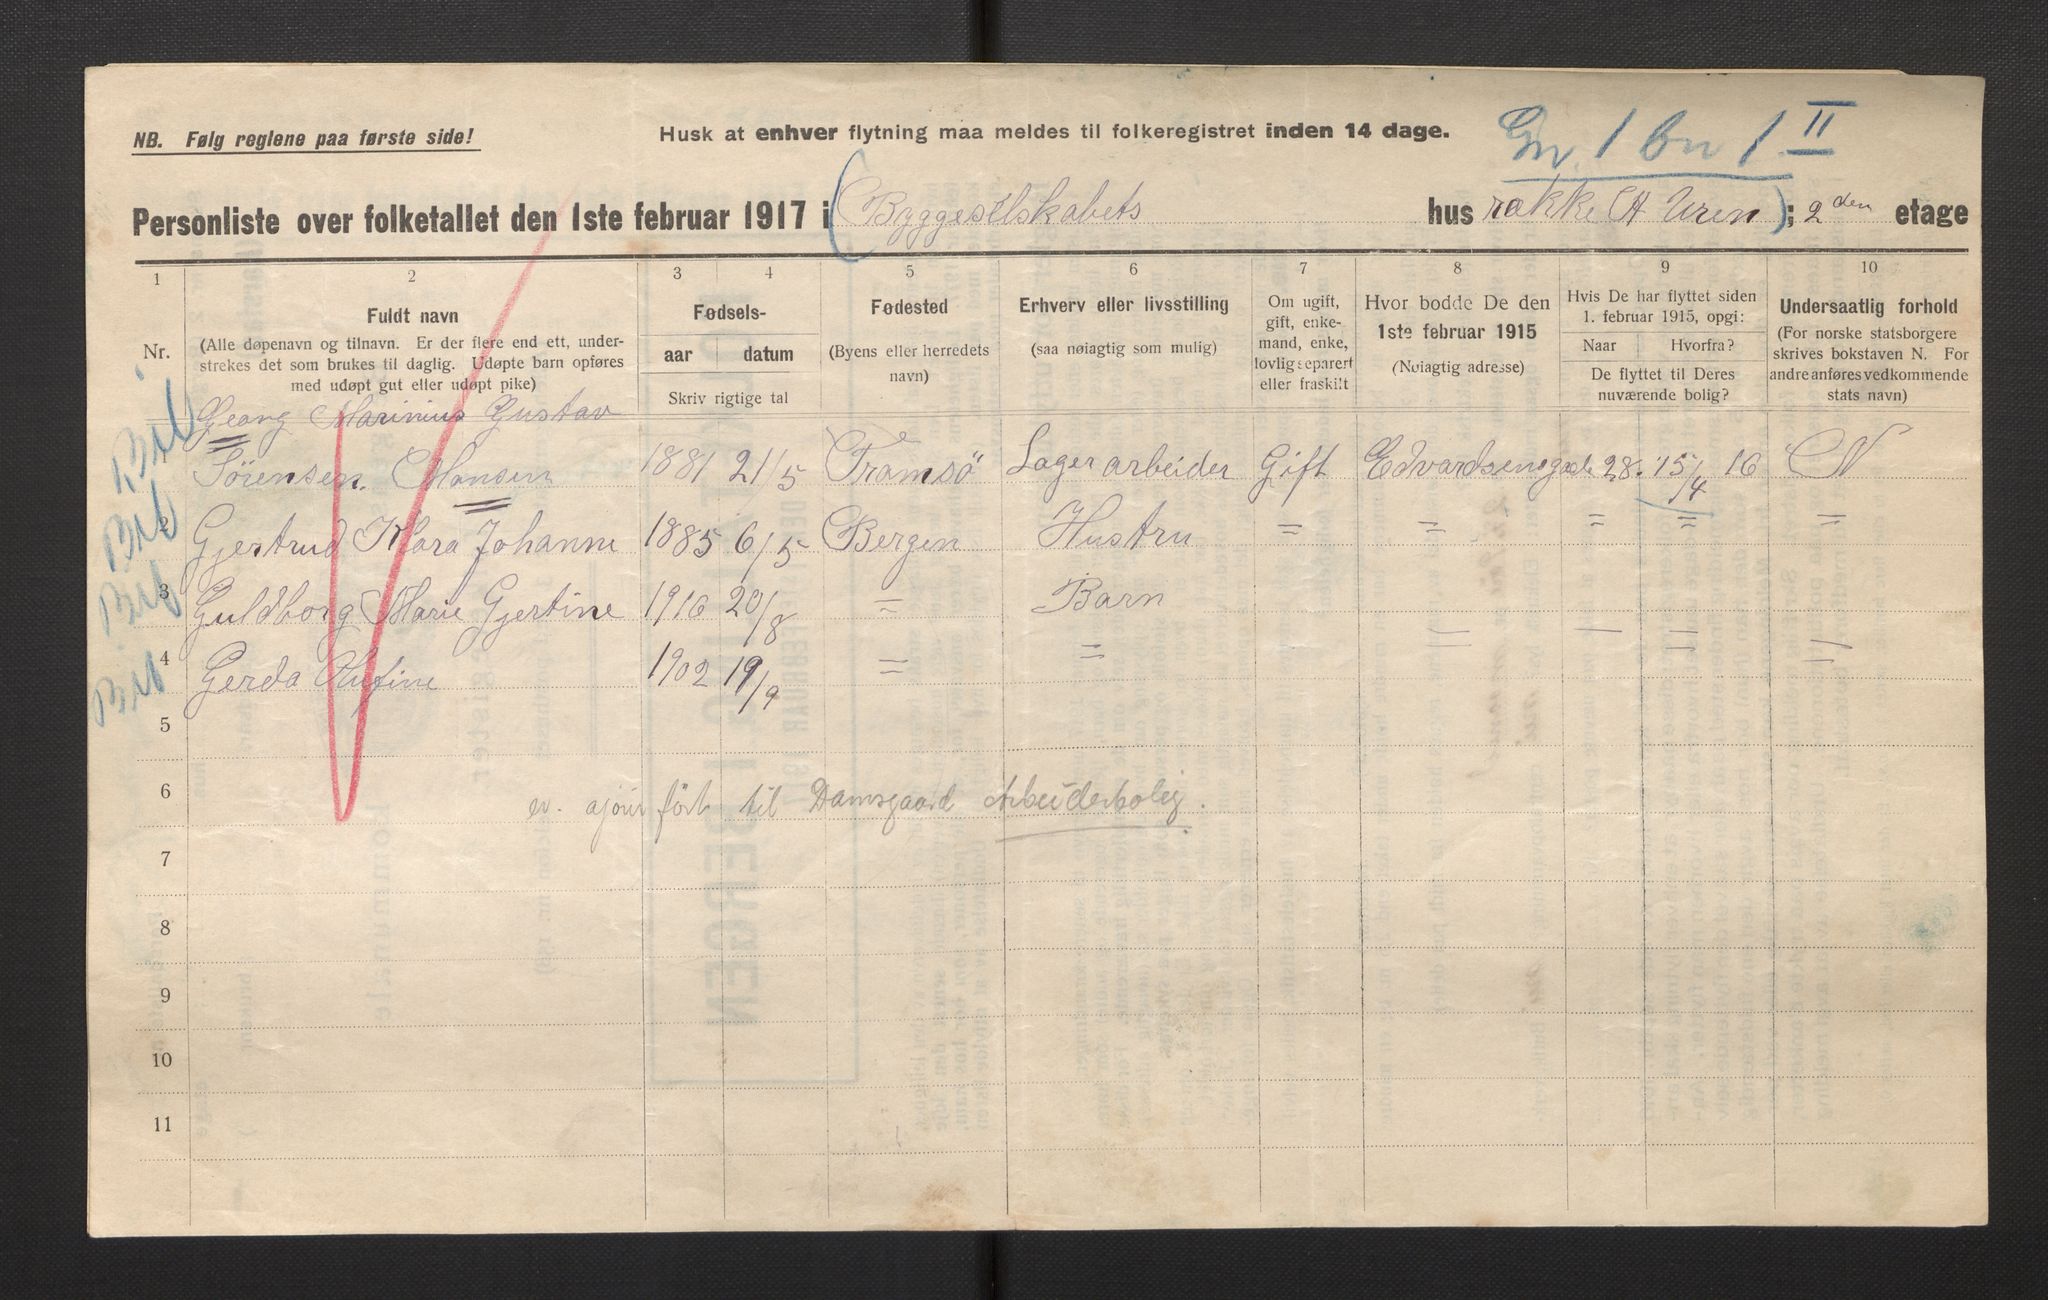 NB. Følg reglene paa første side!
Husk at enhver flytning maa meldes til folkeregistret inden 14 dage.
Gn. 1 bn 1 II
Personliste over folketallet den 1ste februar 1917 i (Byggeselskabets hus række A Uren); 2den etage
1 2 3 4 5 6 7 8 9 10
Nr.
Fuldt navn
(Alle døpenavn og tilnavn. Er der flere end ett, under-
strekes det som brukes til daglig. Udøpte barn opføres
med udøpt gut eller udøpt pike)
Fødsels-
aar datum
Skriv rigtige tal
Fødested
(Byens eller herredets
navn)
Erhverv eller livsstilling
(saa nøiagtig som mulig)
Om ugift,
gift, enke-
mand, enke,
lovlig separert
eller fraskilt
Hvor bodde De den
1ste februar 1915
(Nøiagtig adresse)
Hvis De har flyttet siden
1. februar 1915, opgi:
Naar Hvorfra?
De flyttet til Deres
nuværende bolig?
Undersaatlig forhold
(For norske statsborgere
skrives bokstaven N. For
andre anføres vedkommende
stats navn)
Georg Marinius Gustav
Sörensen Hansen 1881 21/5 Tromsö Lagerarbeider Gift Edvardsensgade 28. 15/4 16 N
2 Gjertrud Klara Johanne 1885 6/5 Bergen Hustru = = = = =
3 Guldborg Marie Gjertine 1916 20/8 = Barn
4 Gerda 1902 19/9 = =
5
6 ev. ajour ført til Damsgaard Arbeiderbolig.
7
8
9
10
11